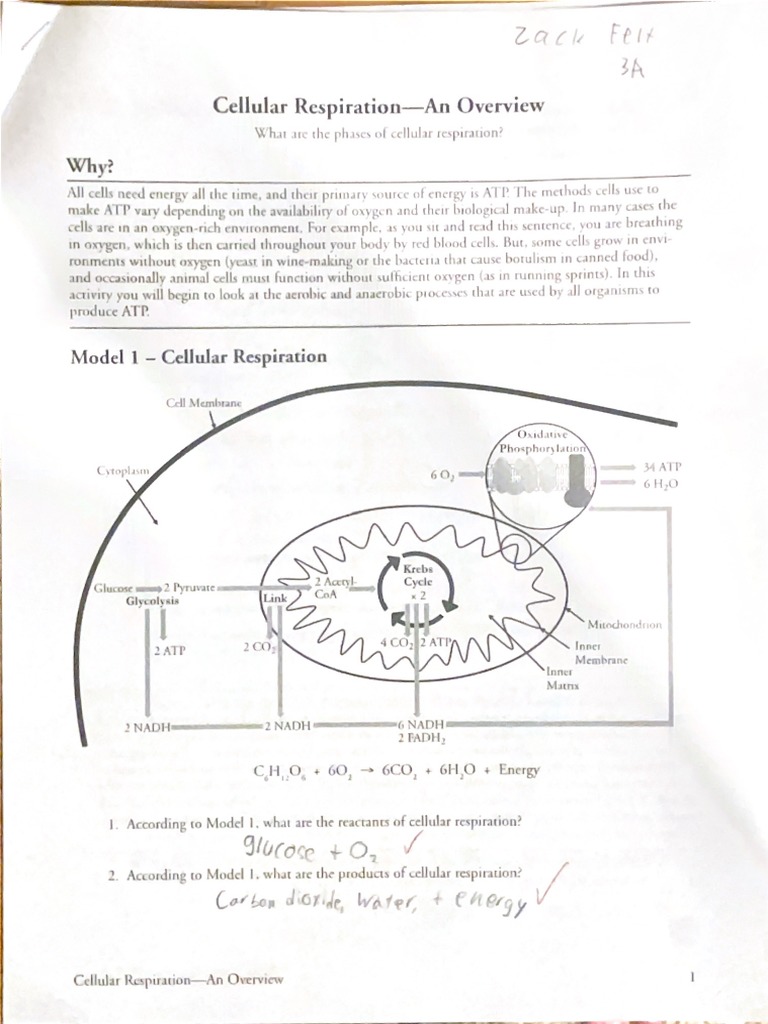 Zack Felt
3A
Cellular Respiration—An Overview
What are the phases of cellular respiration?
Why?
All cells need energy all the time, and their primary source of energy is ATP. The methods cells use to
make ATP vary depending on the availability of oxygen and their biological make-up. In many cases the
cells are in an oxygen-rich environment. For example, as you sit and read this sentence, you are breathing
in oxygen, which is then carried throughout your body by red blood cells. But, some cells grow in envi-
ronments without oxygen (yeast in wine-making or the bacteria that cause botulism in canned food),
and occasionally animal cells must function without sufficient oxygen (as in running sprints). In this
activity you will begin to look at the aerobic and anaerobic processes that are used by all organisms to
produce ATP.
Model 1 – Cellular Respiration
Cell Membrane
Cytoplasm
Oxidative
Phosphorylation
6 O₂
34 ATP
6 H₂O
Glucose
2 Pyruvate
Glycolysis
Link
2 Acetyl-
CoA
Krebs
Cycle
× 2
2 ATP
2 CO₂
4 CO₂
2 ATP
Mitochondrion
Inner
Membrane
Inner
Matrix
2 NADH
2 NADH
6 NADH
2 FADH₂
C₆H₁₂O₆ + 6O₂ → 6CO₂ + 6H₂O + Energy
1. According to Model 1, what are the reactants of cellular respiration?
glucose + O₂ ✓
2. According to Model 1, what are the products of cellular respiration?
Carbon dioxide, water, + energy ✓
Cellular Respiration—An Overview
1